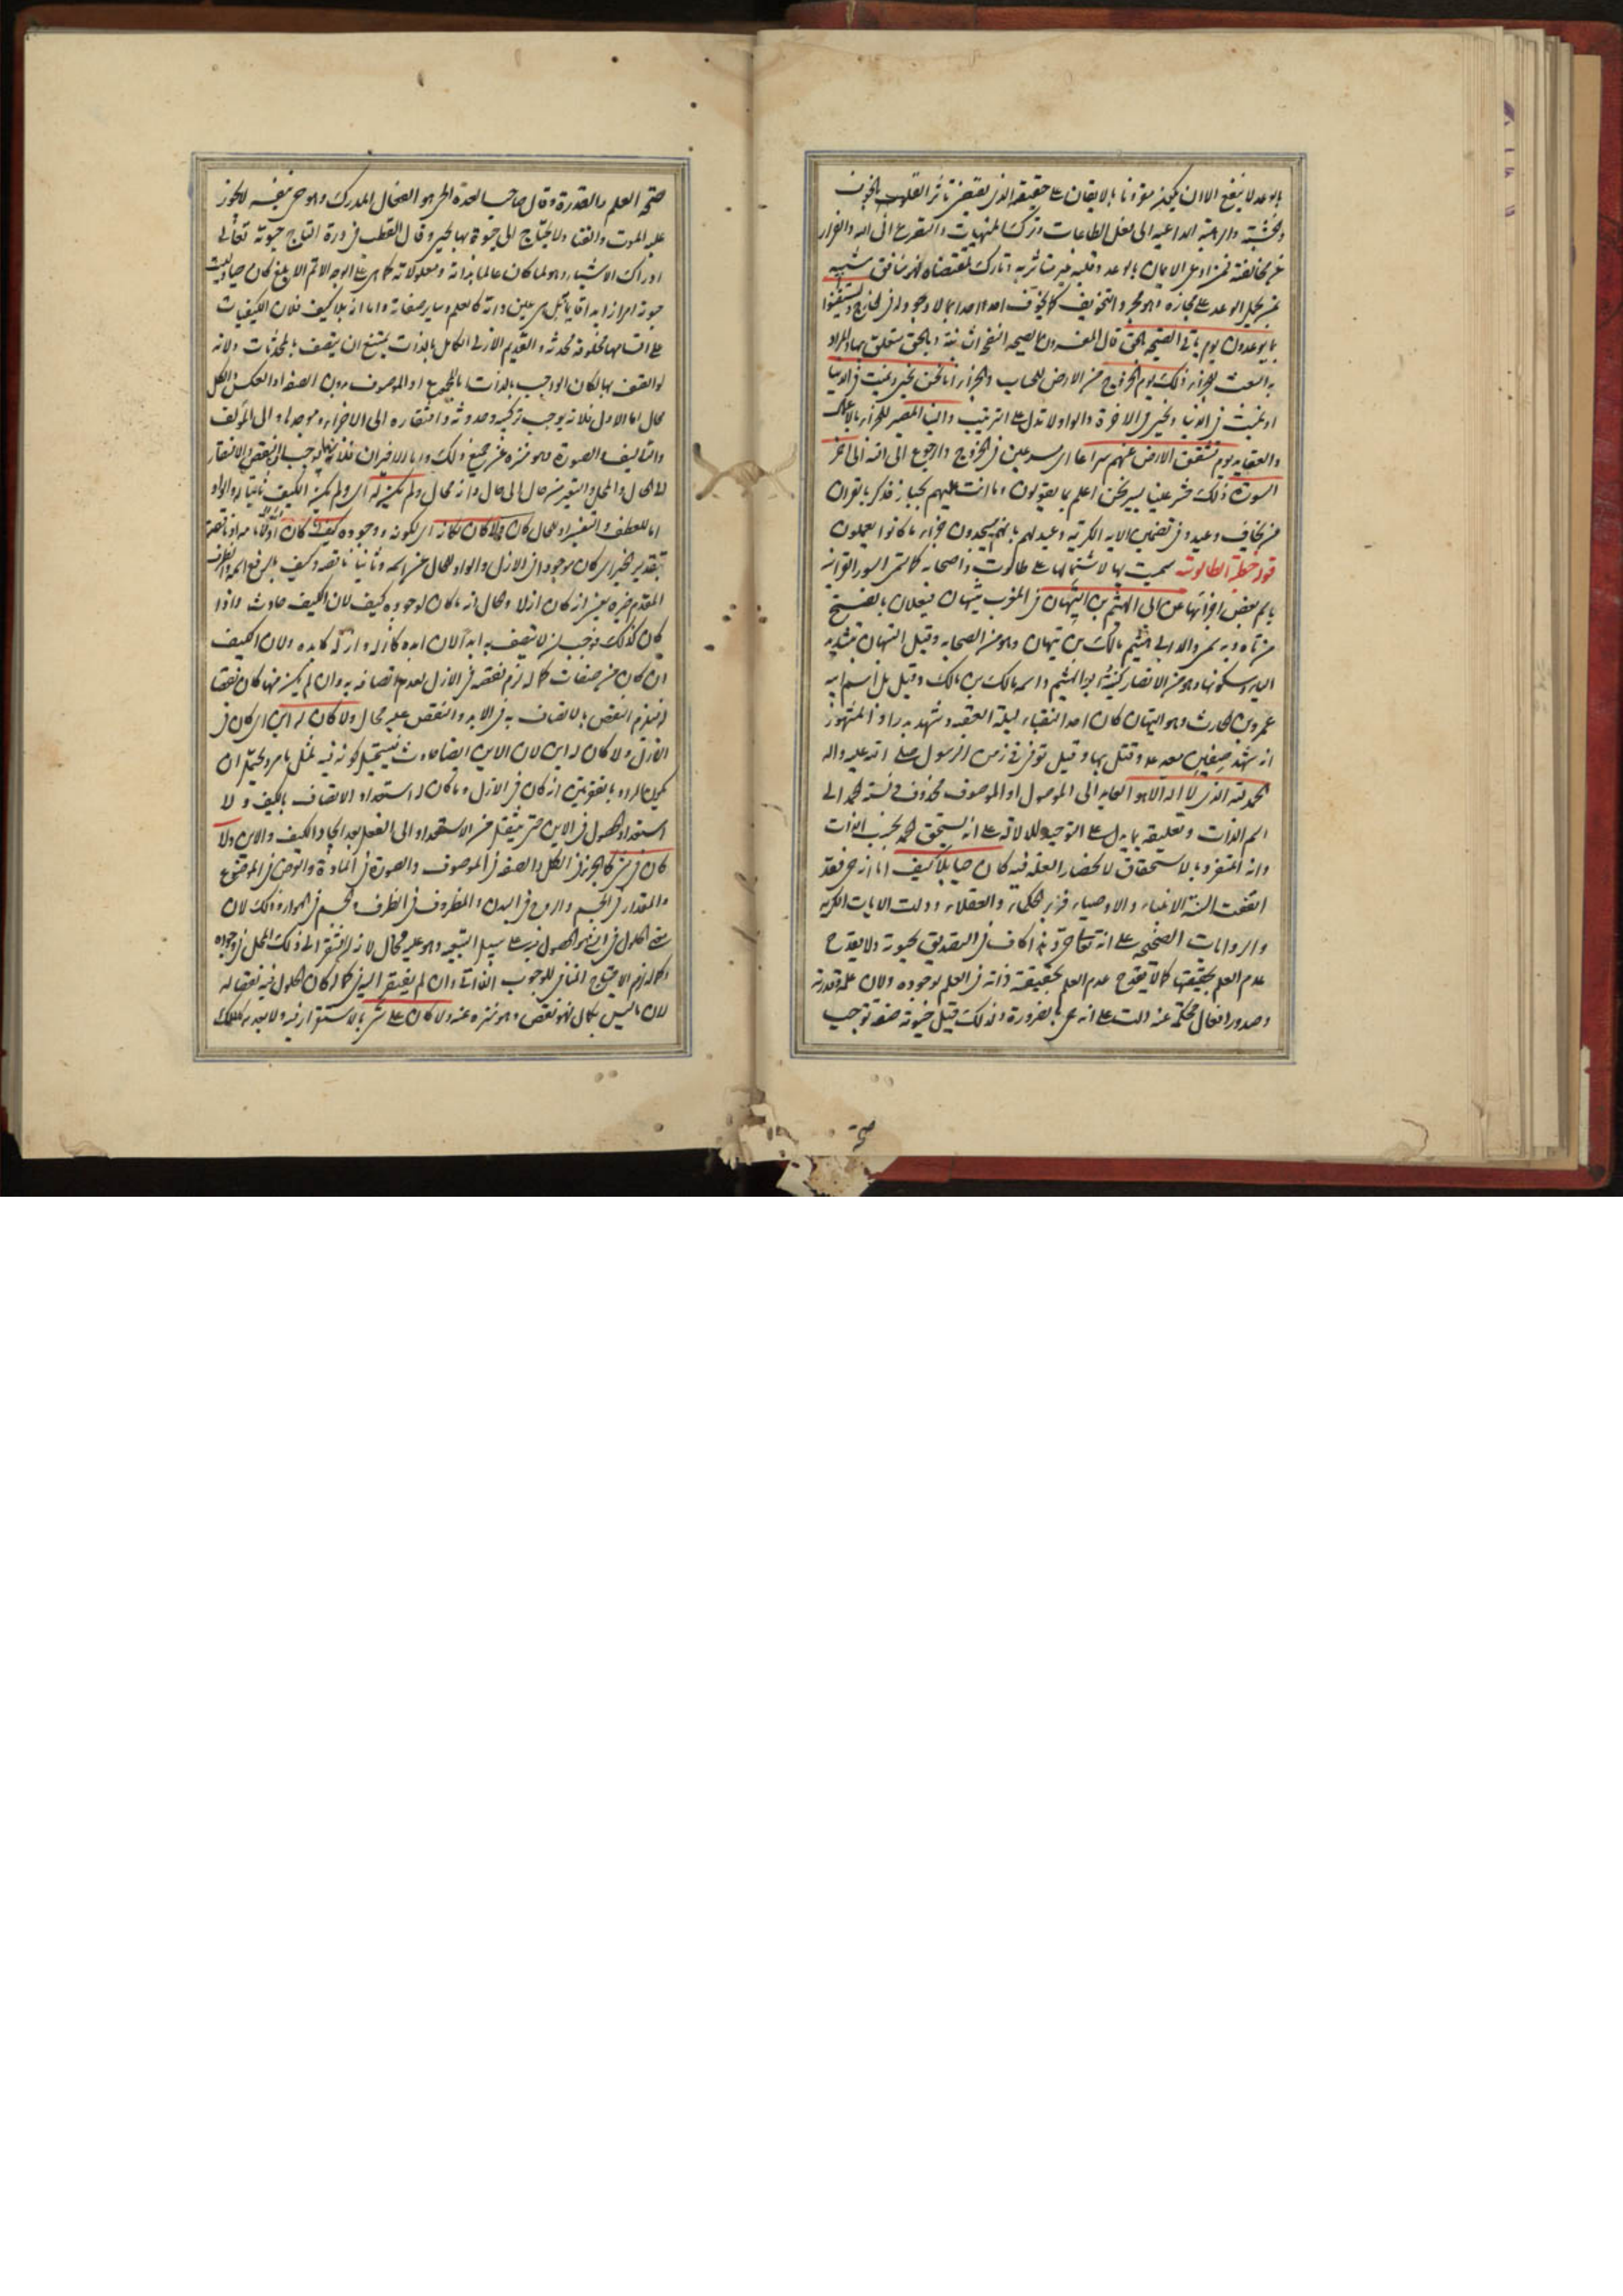 بالوعد لا ينفع الا ان يكون مؤمنا بالايقان على حقيقة الذى يقتضى تأثر القلوب بالخوف
والخشية والرهبة الداعية الى فعل الطاعات وترك المنهيات والتضرع الى الله والفرار
عن مخالفته فمن ادعى الايمان بالوعد وقلبه غير متأثر به وتارك لمقتضاه فهو منافق شبيه
بمن يحمل الوعد على مجازه وهو مجرد التخويف كما يخوف احد احدا بما لا وجود له فى الخارج واستيقنوا
بما يوعدون يوم تأتى الصيحة بالحق قال المفسرون الصيحة النفخة الثانية وبالحق متعلق بها والمراد
به البعث للجزاء ذلك يوم الخروج من الارض للحساب والجزاء انا نحن نحيى ونميت فى الدنيا
او نميت فى الدنيا ونحيى فى الاخرة والواو لا تدل على الترتيب والينا المصير للجزاء بالاعمال
والعقايد يوم تشقق الارض عنهم سراعا اى مسرعين فى الخروج والرجوع الى الله الى آخر
السورة ذلك حشر علينا يسير نحن اعلم بما يقولون وما انت عليهم بجبار فذكر بالقرآن
من يخاف وعيد وفى تضمين الآية الكريمة وعيد لهم بانهم سيجدون جزاء ما كانوا يعملون
قوله خطبة الطالوتية سميت بها لاشتمالها على طالوت واصحابه كما تسمى السور القرآنية
باسم بعض اجزائها عن ابى الهيثم بن التيهان فى المغرب تيهان فيعلان بالفتح
من تاه وبه سمى والد ابى الهيثم مالك بن تيهان وهو من الصحابة وقيل التيهان بتشديد
الياء وسكونها وهو من الانصار كنيته ابو الهيثم واسمه مالك بن مالك وقيل بل اسم ابيه
عمرو بن الحارث وهو التيهان كان احد النقباء ليلة العقبة وشهد بدرا والمشهور
انه شهد صفين معه ع وقتل بها وقيل توفى فى زمن الرسول صلى الله عليه وآله
الحمد لله الذى لا اله الا هو العايد الى الموصول او الموصوف محذوف فى نسبة الحمد الى
اسم الذات وتعليقه بما يدل على التوحيد للدلالة على انه يستحق الحمد بحسب الذات
وانه المتفرد بالاستحقاق لانحصار العلة فيه كان حيا بلا كيف اما انه حى فقد
اتفقت السنة الانبياء والاوصياء وزبر الحكماء والعقلاء ودلت الآيات الكريمة
والروايات الصحيحة على انه تعالى حى وهذا كاف فى التصديق بحيوته ولا يقدح
عدم العلم بحقيقتها كما لا يقدح عدم العلم بحقيقة ذاته فى العلم بوجوده ولان علمه وقدرته
وصدور افعال محكمة عنه دالة على انه حى بالضرورة ولذلك قيل حيوته صفة توجب
صحة
صحة العلم والقدرة وقال صاحب العدة الحى هو الفعال المدرك وهو حى بنفسه لا يجوز
عليه الموت والفناء ولا يحتاج الى حيوة بها يحيى وقال القطب فى درة التاج حيوته تعالى
ادراك الاشياء وهو لما كان عالما بذاته ومعلولاته كما هى على الوجه الاتم الابلغ كان حيا وليست
حيوته امرا زايدا قايما به بل هى عين ذاته كالعلم وساير صفاته واما انه بلا كيف فلان الكيفيات
على اقسامها مخلوقة محدثة والقديم الازلى الكامل بالذات يمتنع ان يتصف بالمحدثات ولانه
لو اتصف بها لكان الواجب بالذات المجموع او الموصوف بدون الصفة او العكس والكل
محال اما الاول فلانه يوجب تركبه وحدوثه وافتقاره الى الاجزاء وموجدها والى المؤلف
والتأليف والصورة وهو منزه عن جميع ذلك واما الاخيران فلانهما يوجبان النقص والافتقار
الى الحال والمحل والتغير من حال الى حال وانه محال ولم يكن له اى ولم يكن الكيف ثابتا له والواو
اما للعطف والتفسير او للحال كان ولا كان لمكانه اى لكونه ووجوده كيف كان اولا تامة او ناقصة
بتقدير الخبر اى كان موجودا فى الازل والواو للحال عن اسمه وثانيا ناقصة وكيف بالرفع اسمه والظرف
المقدم خبره يعنى انه كان ازلا والحال انه ما كان لوجوده كيف لان الكيف حادث واذا
كان كذلك فوجب ان لا يتصف به ابدا لان ابده كازله وازله كابده ولان الكيف
ان كان من صفات كماله لزم نقصه فى الازل لعدم اتصافه به وان لم يكن منها كان نقصا
فيلزم النقص بالاتصاف به فى الابد والنقص عليه محال ولا كان له اين اى كان فى
الازل ولا كان له اين لان الاين ايضا حادث فيستحيل كونه فيه لمثل ما مر ويحتمل ان
يكون المراد بالفقرتين انه كان فى الازل وما كان له استعداد الاتصاف بالكيف ولا
استعداد الحصول فى الاين حتى ينتقل من الاستعداد الى الفعل بعد ايجاد الكيف والاين ولا
كان فى شئ كالجزء فى الكل والصفة فى الموصوف والصورة فى المادة والعرض فى الموضوع
والمقدار فى الجسم والروح فى البدن والمظروف فى الظرف والجسم فى الهواء وذلك لان
معنى الحلول فى شئ هو الحصول فيه على سبيل التبعية وهو عليه محال لانه ان افتقر الى ذلك المحل فى وجوده
وكماله لزم الاحتياج المنافى للوجوب الذاتى وان لم يفتقر اليه فى كماله كان الحلول فيه نقصا له
لان ما ليس بكمال فهو نقص وهو منزه عنه ولا كان على شئ بالاستقرار فيه ولا بعد به كالملك